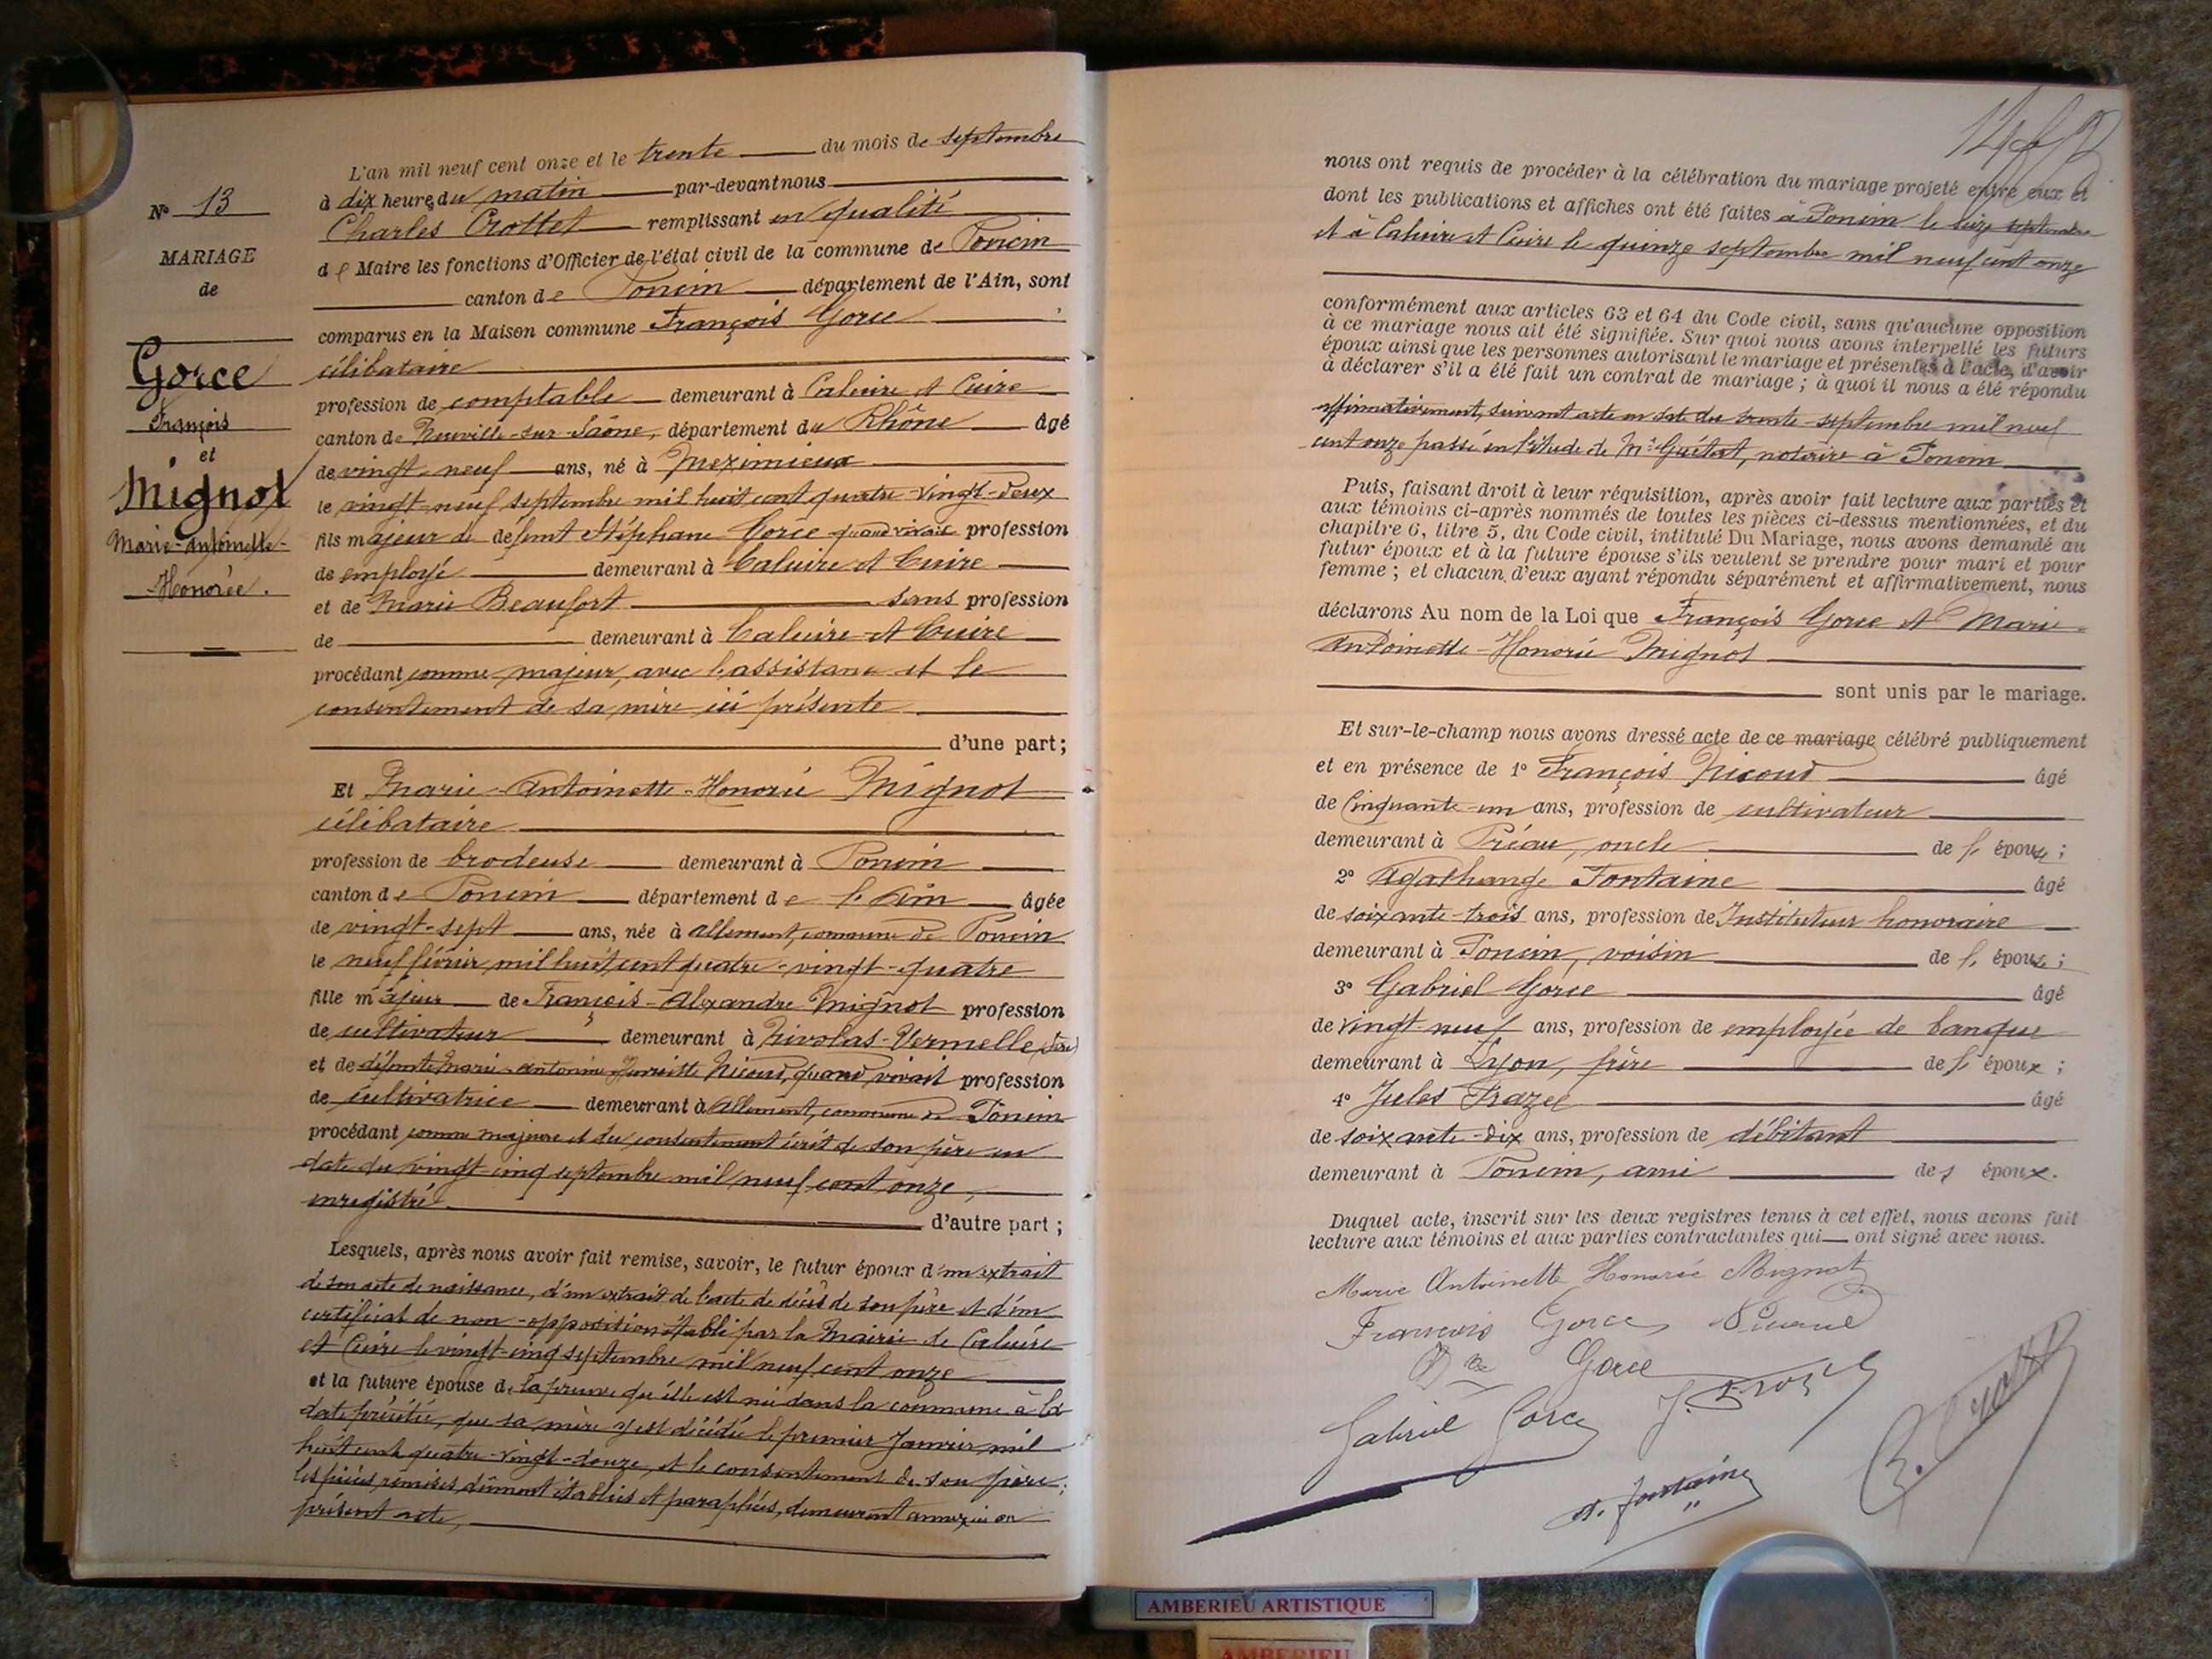 N° 13
MARIAGE
de
Gorce
François
et
Mignot
Marie-Antoinette-
Honorée.
L'an mil neuf cent onze et le trente du mois de septembre
à dix heures du matin par-devant nous
Charles Crottet remplissant en qualité
de Maire les fonctions d'Officier de l'état civil de la commune de Poncin
canton de Poncin département de l'Ain, sont
comparus en la Maison commune François Gorce
célibataire
profession de comptable demeurant à Caluire et Cuire
canton de Neuville-sur-Saône, département du Rhône âgé
de vingt-neuf ans, né à Meximieux
le vingt-neuf septembre mil huit cent quatre-vingt-deux
fils majeur de défunt Stéphane Gorce quand vivait profession
de employé demeurant à Caluire et Cuire
et de Marie Beaufort sans profession
de demeurant à Caluire et Cuire
procédant comme majeur, avec l'assistance et le
consentement de sa mère ici présente
d'une part;
Et Marie-Antoinette-Honorée Mignot
célibataire
profession de brodeuse demeurant à Poncin
canton de Poncin département de l'Ain âgée
de vingt-sept ans, née à Allement, commune de Poncin
le neuf février mil huit cent quatre-vingt-quatre
fille majeure de François-Alexandre Mignot profession
de cultivateur demeurant à Nivolas-Vermelle (Isère)
et de défunte Marie-Antonine-Henriette Nicoud, quand vivait profession
de cultivatrice demeurant à Allement, commune de Poncin
procédant comme majeure et du consentement écrit de son père en
date du vingt-cinq septembre mil neuf cent onze,
enregistré
d'autre part;
Lesquels, après nous avoir fait remise, savoir, le futur époux d'un extrait
de son acte de naissance, d'un extrait de l'acte de décès de son père et d'un
certificat de non-opposition établi par la Mairie de Caluire
et Cuire le vingt-cinq septembre mil neuf cent onze
et la future épouse de la preuve qu'elle est née dans la commune à la
date précitée, que sa mère y est décédée le premier Janvier mil
huit cent quatre-vingt-douze, et le consentement de son père;
les pièces remises dûment établies et paraphées, demeurent annexées au
présent acte,
nous ont requis de procéder à la célébration du mariage projeté entre eux et
dont les publications et affiches ont été faites à Poncin le seize septembre
et à Caluire et Cuire le quinze septembre mil neuf cent onze
conformément aux articles 63 et 64 du Code civil, sans qu'aucune opposition
à ce mariage nous ait été signifiée. Sur quoi nous avons interpellé les futurs
époux ainsi que les personnes autorisant le mariage et présentes à l'acte, d'avoir
à déclarer s'il a été fait un contrat de mariage; à quoi il nous a été répondu
affirmativement, suivant acte en date du trente septembre mil neuf
cent onze passé en l'étude de Me Guétat, notaire à Poncin
Puis, faisant droit à leur réquisition, après avoir fait lecture aux parties et
aux témoins ci-après nommés de toutes les pièces ci-dessus mentionnées, et du
chapitre 6, titre 5, du Code civil, intitulé Du Mariage, nous avons demandé au
futur époux et à la future épouse s'ils veulent se prendre pour mari et pour
femme; et chacun d'eux ayant répondu séparément et affirmativement, nous
déclarons Au nom de la Loi que François Gorce et Marie-
Antoinette-Honorée Mignot
sont unis par le mariage.
Et sur-le-champ nous avons dressé acte de ce mariage célébré publiquement
et en présence de 1° François Nicoud âgé
de Cinquante-un ans, profession de cultivateur
demeurant à Préau, oncle de l'épouse;
2° Agathange Fontaine âgé
de soixante-trois ans, profession de Instituteur honoraire
demeurant à Poncin, voisin de l'épouse;
3° Gabriel Gorce âgé
de vingt-neuf ans, profession de employée de banque
demeurant à Lyon, frère de l'époux;
4° Jules Frazel âgé
de soixante-dix ans, profession de débitant
demeurant à Poncin, ami des époux.
Duquel acte, inscrit sur les deux registres tenus à cet effet, nous avons fait
lecture aux témoins et aux parties contractantes qui ont signé avec nous.
Marie Antoinette Honorée Mignot
François Gorce Nicoud
Gorce
Gabriel Gorce
A. fontaine
AMBERIEU ARTISTIQUE
AMBERIEU